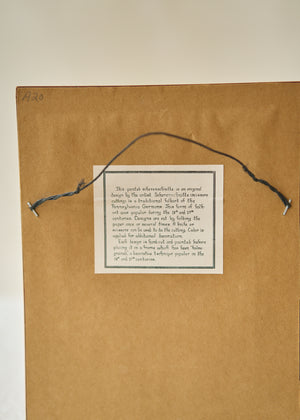 A20
This gentle scherenschnitte is an original
design by the artist. Scherenschnitte (scissors
cuttings) is a traditional folkart of the
Pennsylvania Germans. This form of folk
art was popular during the 18th and 19th
centuries. Designs are cut by folding the
paper once or several times. A knife or
scissors can be used to do the cutting. Color is
applied for additional decoration.
Each design is hand-cut and painted before
placing it in a frame which has been "false
grained", a decorative technique popular in the
18th and 19th centuries.